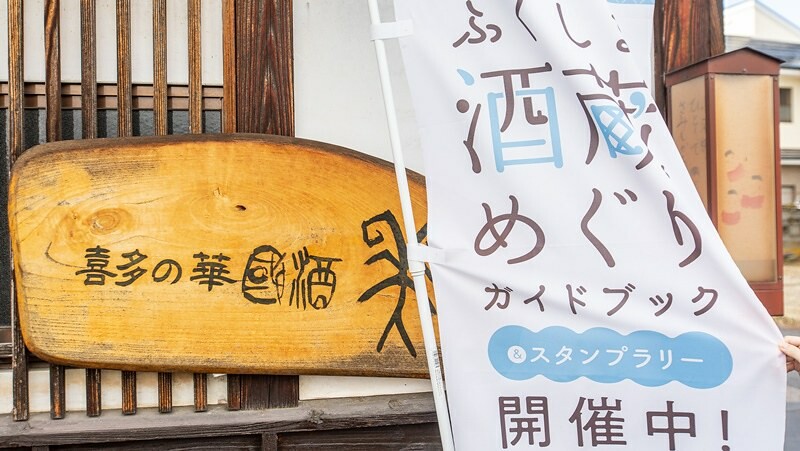 喜多の華國酒
ふくしま
酒蔵
めぐり
ガイドブック
&スタンプラリー
開催中!